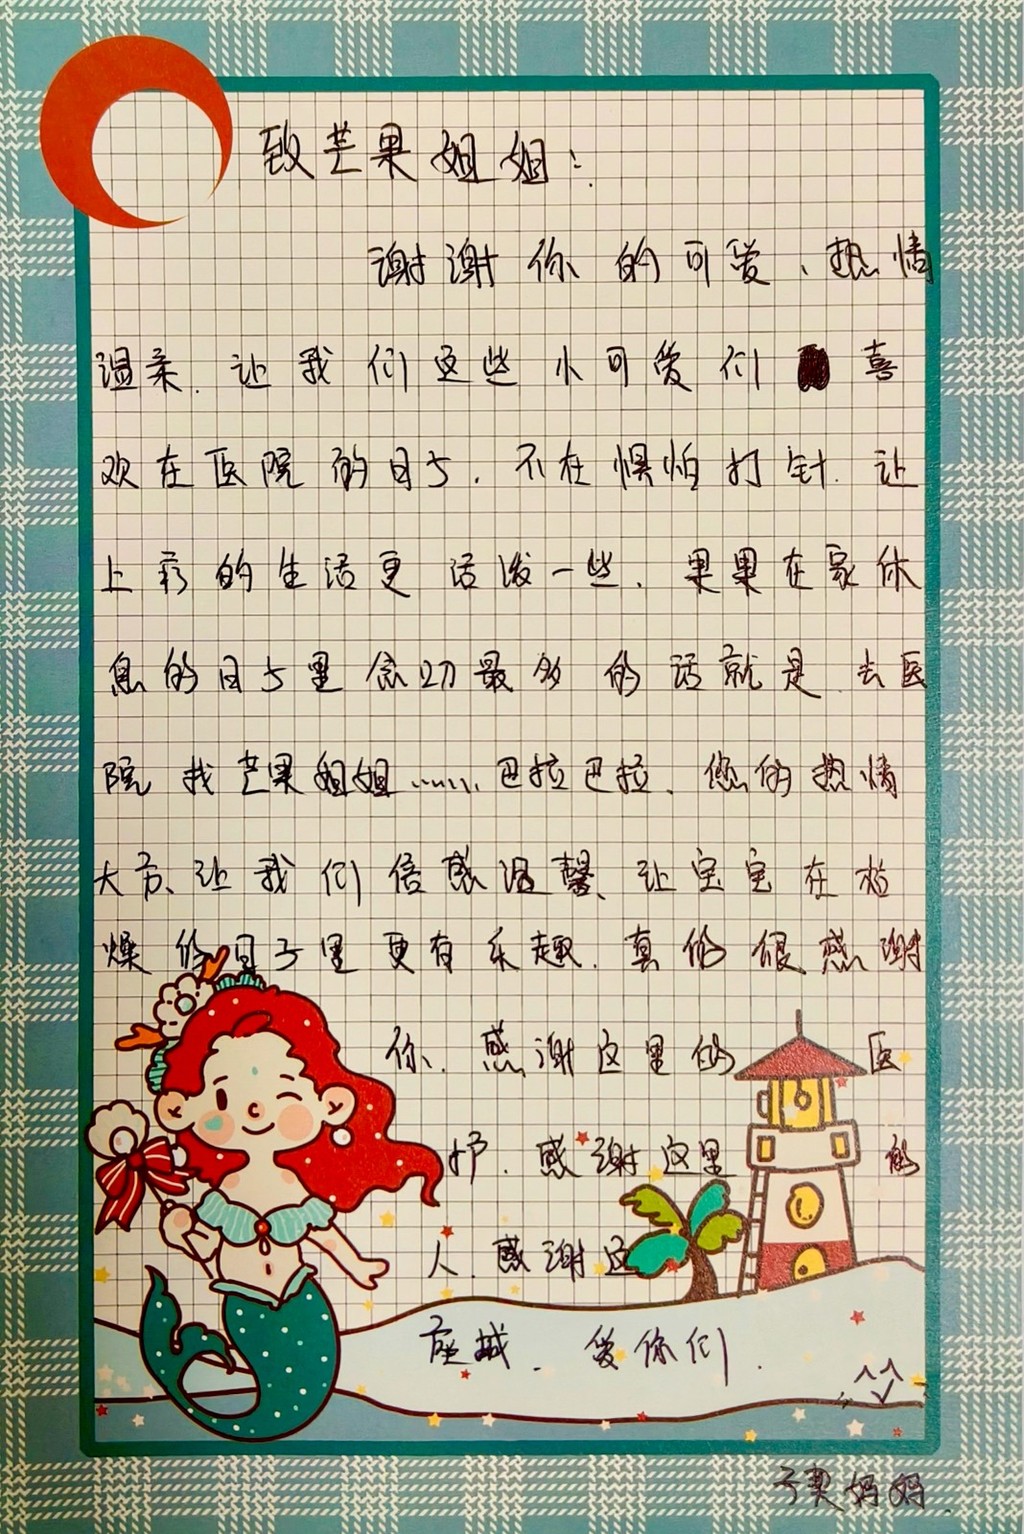 致芒果姐姐：
谢谢你的可爱、热情
温柔.让我们这些小可爱们喜
欢在医院的日子.不在惧怕打针.让
上彩的生活更活泼一些.果果在家休
息的日子里念叨最多的话就是去医
院找芒果姐姐……巴拉巴拉.您的热情
大方、让我们倍感温馨、让宝宝在枯
燥的日子里更有乐趣.真的很感谢
你.感谢这里的医
护.感谢这里的
人.感谢这
座城.爱你们.
妈妈.